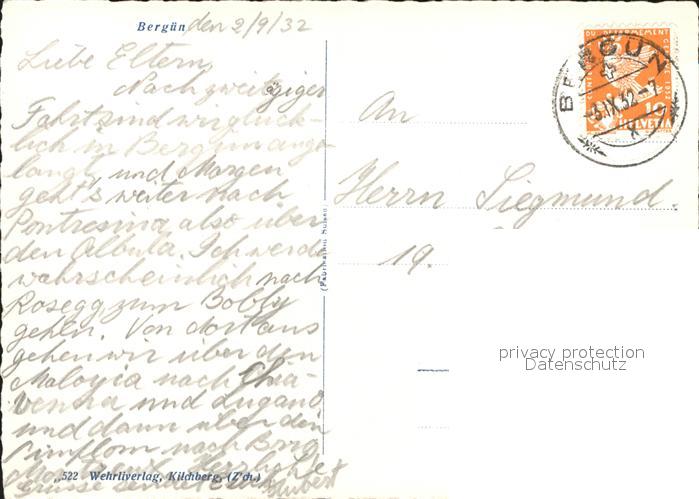 Bergün den 2/9/32
Liebe Eltern,
Nach zweitägiger
Fahrt sind wir glück-
lich in Bergün ange-
langt, und Morgen
geht's weiter nach
Pontresina also über
den Albula. Ich werde
wahrscheinlich nach
Rosegg zum Bobby
gehen. Von dort aus
gehen wir über den
Maloyia nach Chia-
venna und Lugano
und dann über den
nach
Grüsse sendet Euer Hubert
522 Wehrliverlag, Kilchberg, (Z'ch.)
(Fabrication Suisse)
An
Herrn Siegmund.
19.
BERGÜN
-3.IX.32-7
10
HELVETIA
privacy protection
Datenschutz